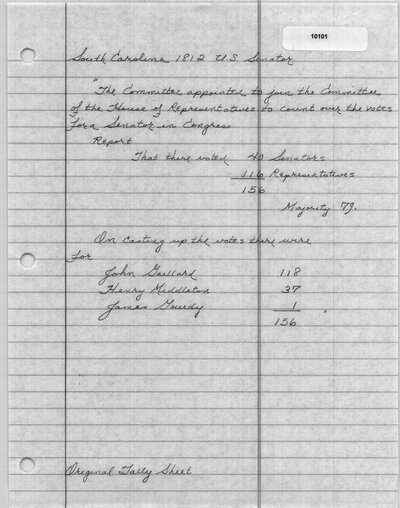 10101
South Carolina 1812 U.S. Senator
"The Committee appointed to join the Committee
of the House of Representatives to count over the votes
for a Senator in Congress
Report
That there voted 40 Senators
116 Representatives
156
Majority 79.
On casting up the votes there were
for
John Gaillard 118
Henry Middleton 37
James Gourdy 1
156 "
Original Tally Sheet